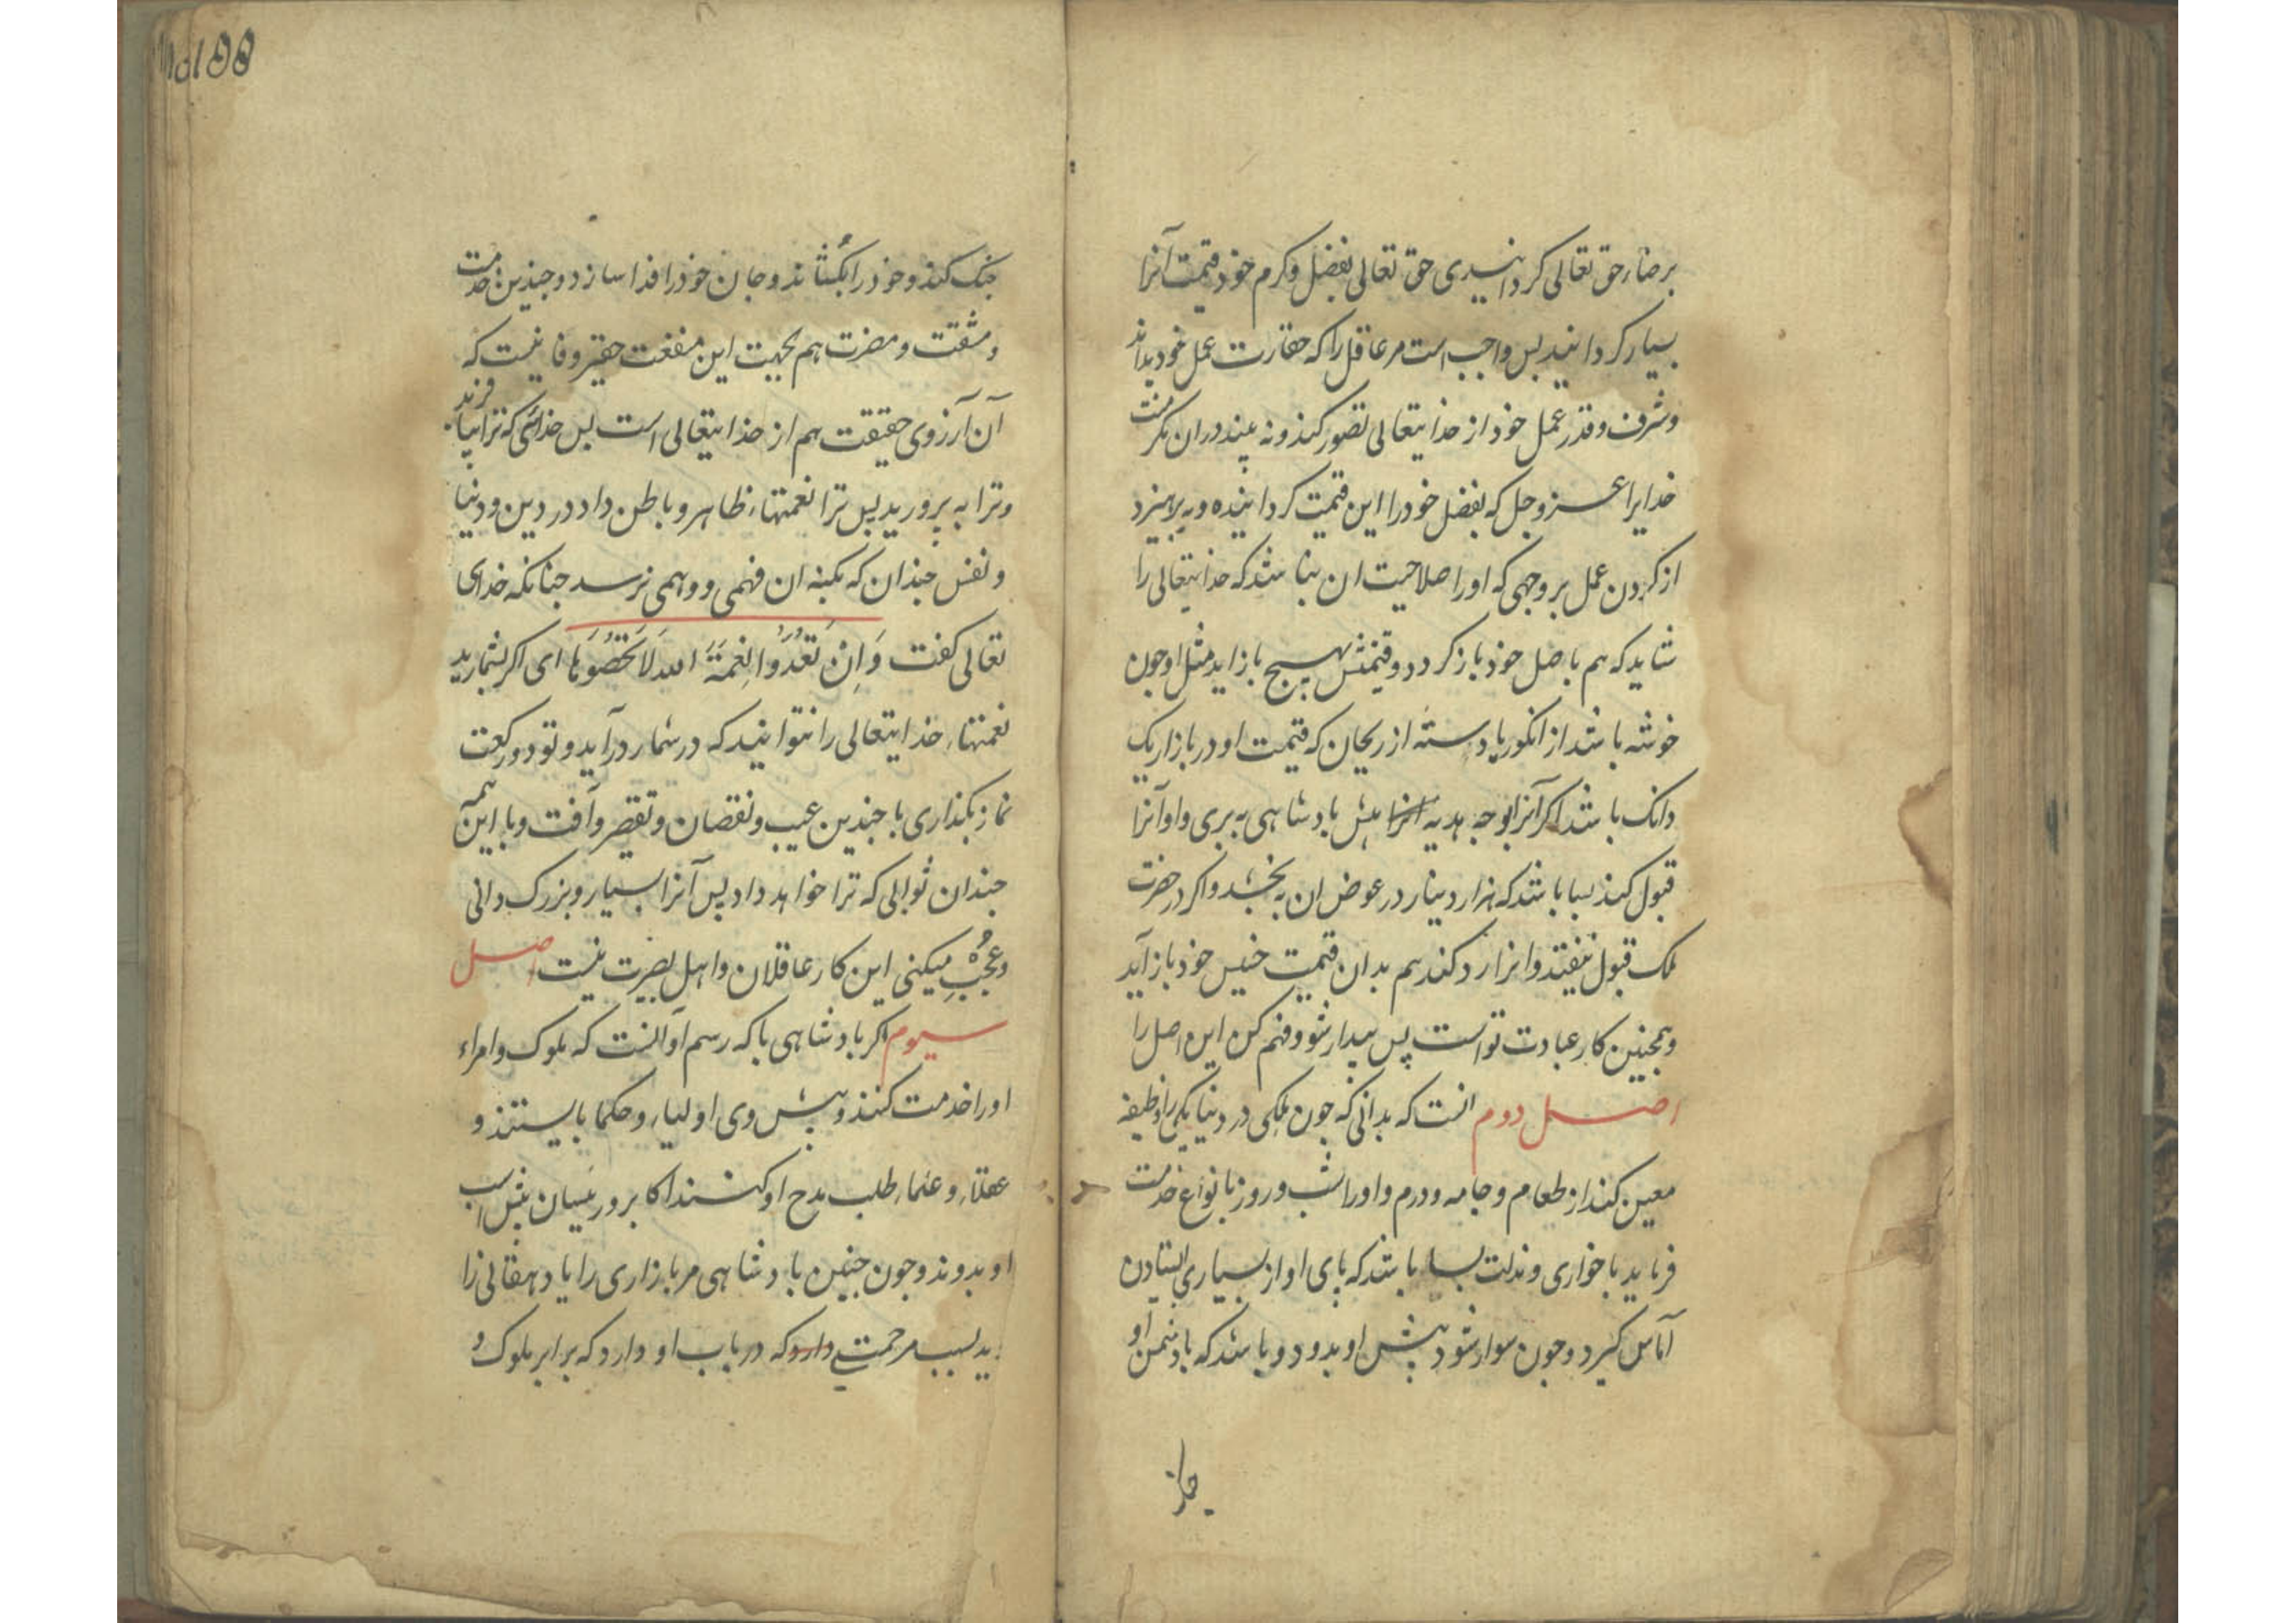 برضاء حق تعالی کردانیدی حق تعالی بفضل و کرم خود قیمت آنرا
بسیار کردانید بس واجب است مر عاقل را که حقارت عمل خود بداند
و شرف و قدر عمل خود از خدایتعالی تصور کند و نه بیند دران مکر منت
خدایرا عز و جل که بفضل خود را این قیمت کردانیده و بپرهیزد
از کردن عمل بر وجهی که او را صلاحیت ان نباشد که خدایتعالی را
شاید که هم باصل خود باز کردد و قیمتش بهیچ باز اید مثل او جون
خوشه باشد از انکور یا دسته از ریحان که قیمت او در بازار یک
دانک باشد اکر آنرا بوجه هدیه پیش بادشاهی به بری و او آنرا
قبول کند بسا باشد که هزار دینار در عوض ان به بخشد و اکر در حضرت
ملک قبول نیفتد و انرا رد کند هم بدان قیمت خسیس خود باز آید
و همجنین کار عبادت تو است پس بیدار شو و فهم کن این اصل را
اصل دوم انست که بدانی که جون ملکی در دنیا یکی را وظیفه
معین کند از طعام و جامه و درم و او را شب و روز بانواع خدمت
فرماید با خواری و مذلت بسا باشد که پای او از بسیاری ایستادن
آماس کیرد و جون سوار شود پیش او بدود و باشد که با دشمن او
جنک کند و خود را بکشاند و جان خود را فدا سازد و جندین خدمت
و مشقت و مضرت هم بجهت این منفعت حقیر و فانیست که
آن آرزوی حقیقت هم از خدایتعالی است بس خدائی که ترا بیافرید
و ترا به پرورید بس ترا نعمتهاء ظاهر و باطن داد در دین و دنیا
و نفس جندان که بکنه ان فهمی و وهمی نرسد جنانکه خدای
تعالی کفت وَاِنْ تَعُدُّوا نِعْمَةَ اللهِ لَا تُحْصُوهَا ای اکر بشمارید
نعمتهاء خدایتعالی را نتوانید که در شمار درآید و تو دو رکعت
نماز بکذاری با جندین عیب و نقصان و تقصیر و آفت و با این همه
جندان ثوابی که ترا خواهد داد پس آنرا بسیار و بزرک دانی
و عُجْب میکنی این کار عاقلان و اهل بصیرت نیست اصل
سیوم اکر بادشاهی باکه رسم او آنست که ملوک و امراء
او را خدمت کنند و پیش وی اولیاء و حکما بایستند و
عقلاء و علماء طلب مدح او کنند اکابر و رئیسان پیش اسب
او بدوند و جون جنین بادشاهی مر بازاری را یا دهقانی را
بد بسبب مرحمتی که در باب او دارد که برابر ملوک و